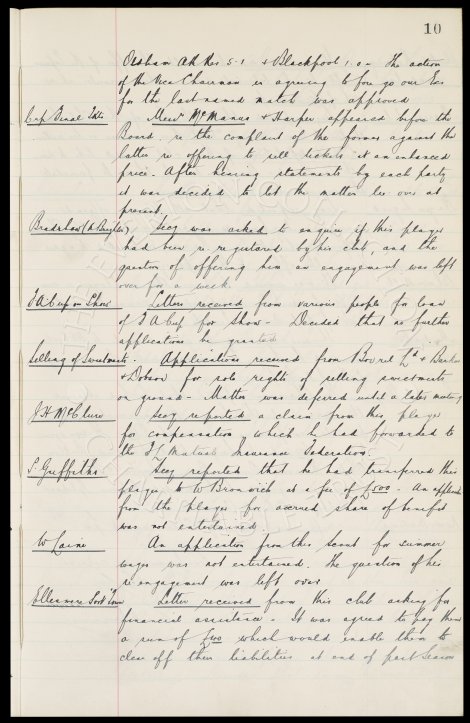 10
Oldham Ath Res 5-1 & Blackpool 1-0 - The action
of the Vice Chairman in agreeing to fore go our Exs
for the last named match was approved
Cup Final Tkts Messrs McManus & Harper appeared before the
Board re the complaint of the former against the
latter re offering to sell tickets at an enhanced
price. After hearing statements by each party
it was decided to let the matter lie over at
present.
Bradshaw Secy was asked to enquire if this player
had been re registered by his club, and the
question of offering him an engagement was left
over for a week.
F A Cup on Show Letters received from various people for loan
of F A Cup for Show - Decided that no further
applications be granted
Selling of Sweetmeats. Applications received from Bovril Ld &
& Dobson for sole rights of selling sweetmeats
on ground - Matter was deferred until a later meeting
J H McClure Secy reported a claim from this player
for compensation which he had forwarded to
the F L Mutual Insurance Federation.
S. Griffiths Secy reported that he had transferred this
player to W Bromwich at a fee of £500 - An application
from the player for accrued share of benefit
was not entertained.
W An application from this scout for summer
wages was not entertained. The question of his
re engagement was left over
Ellesmere Port Town Letter received from this club asking for
financial assistance - It was agreed to pay them
a sum of which would enable them to
clear off their liabilities at end of past season